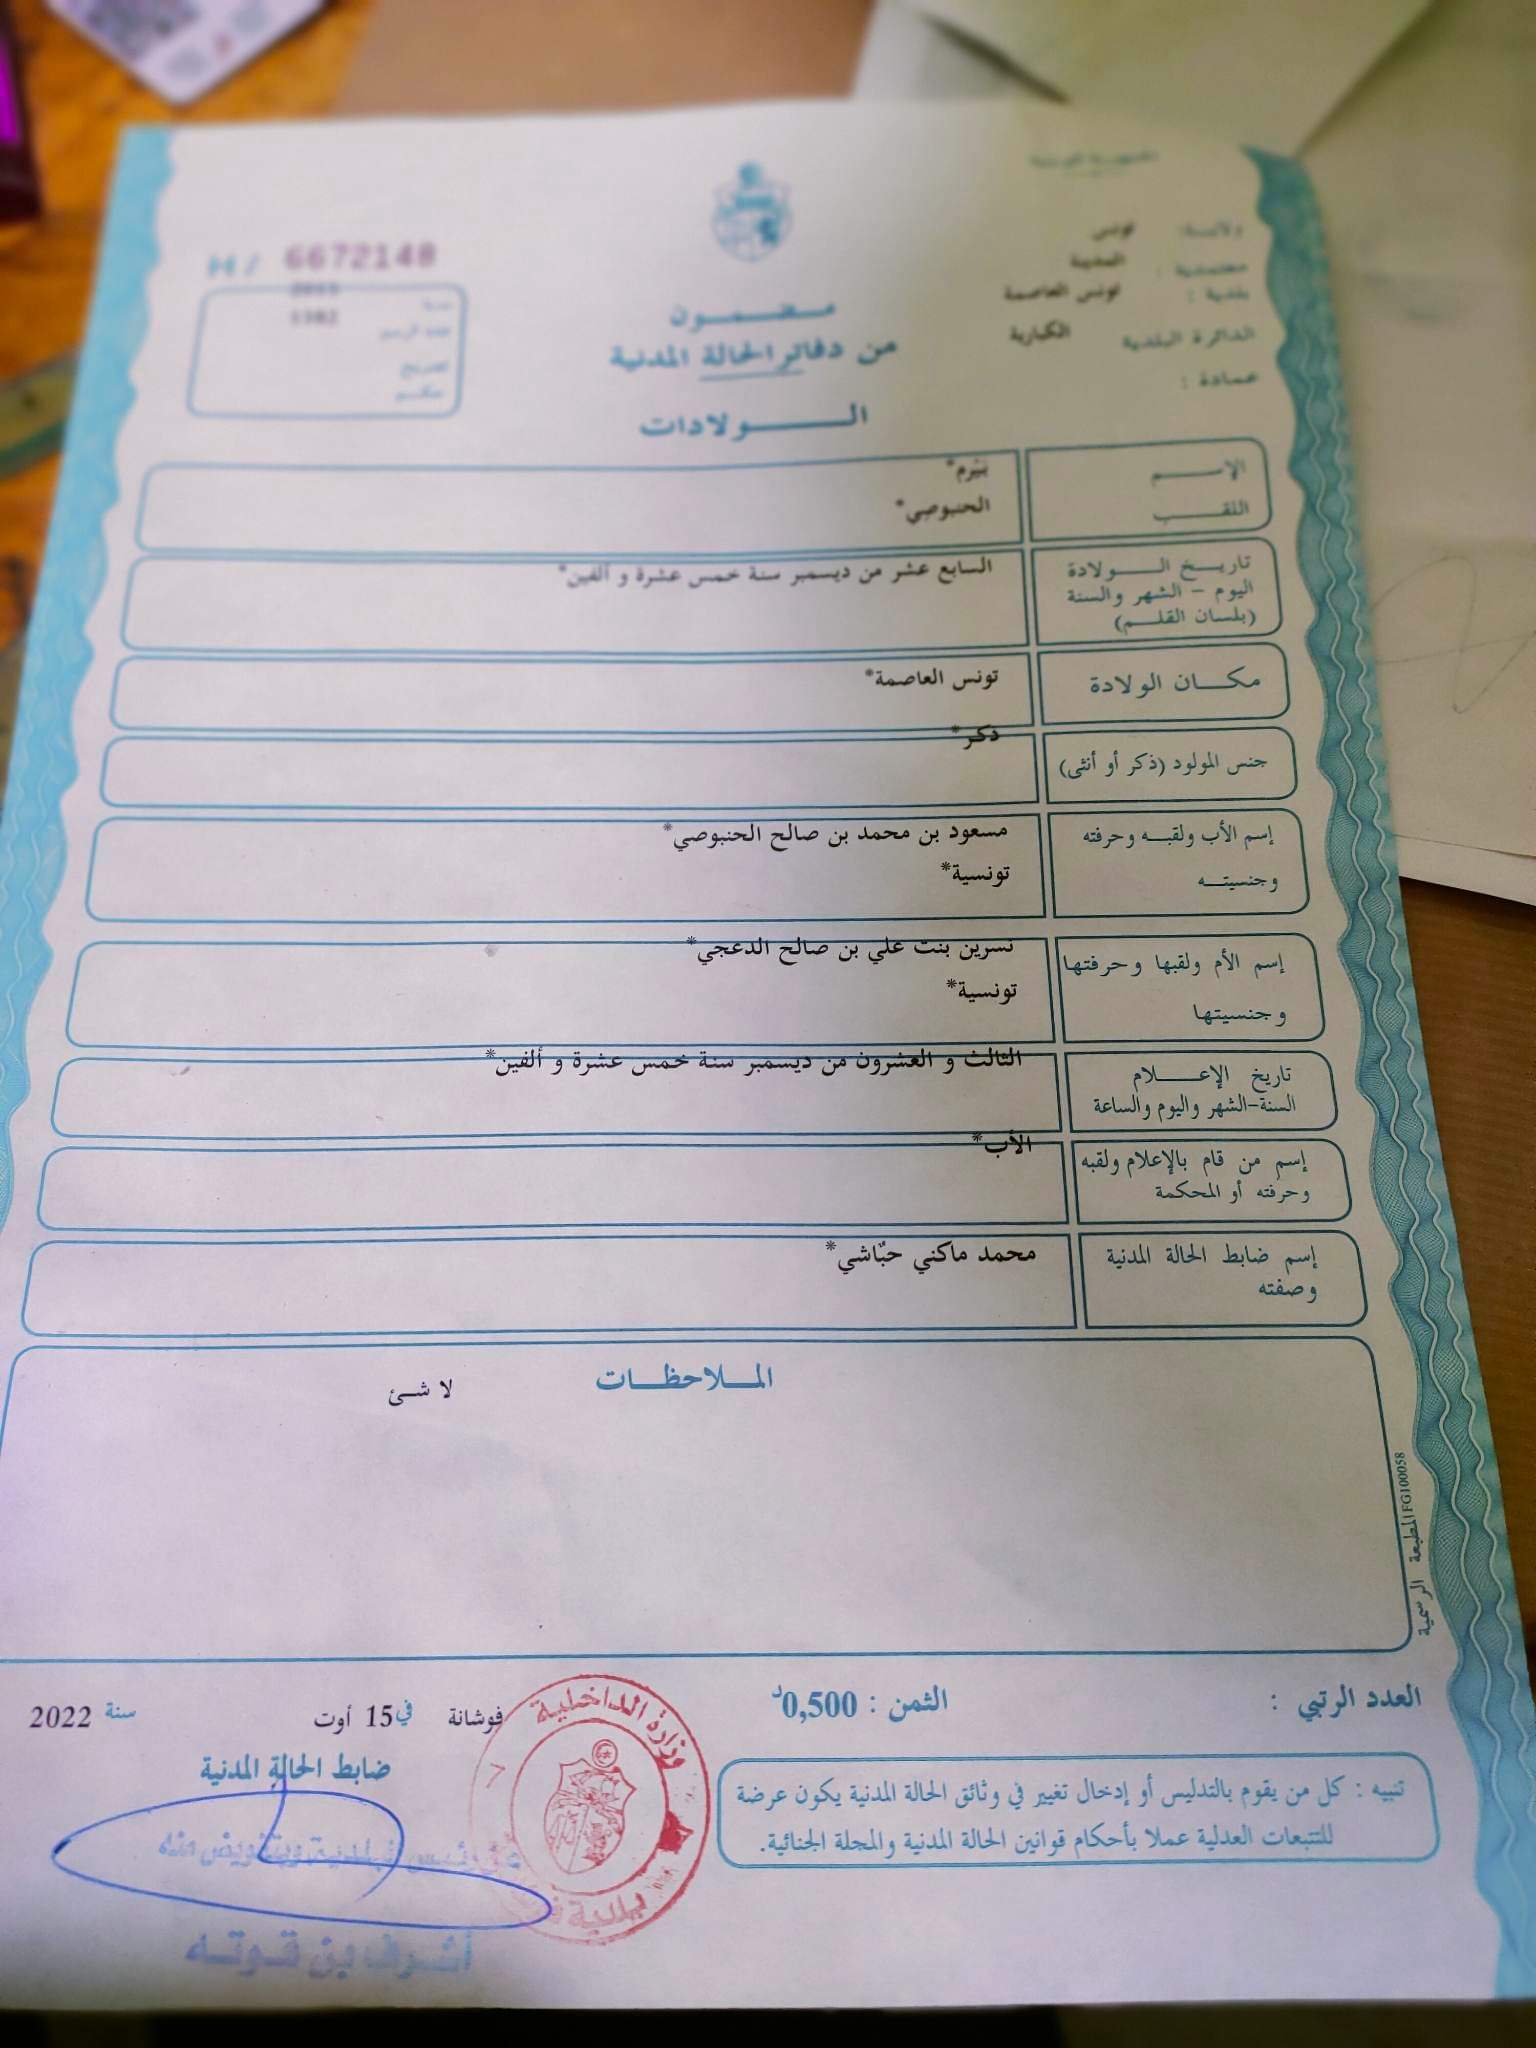 الجمهورية التونسية
ولايــة: تونس
معتمدية : المدينة
بلدية : تونس العاصمة
الدائرة البلدية الكبارية
عمادة :
H / 6672148
سنة
عدد الرسم
تصريح
حكــم
مــضــمــون
من دفاتر الحالة المدنية
الــــولادات
الإســـــم بيْرم*
اللقـــب الحنبوصي*
تاريــخ الـــــولادة السابع عشر من ديسمبر سنة خمس عشرة و ألفين*
اليوم – الشهر والسنة
(بلسان القلــم)
مكـــان الولادة تونس العاصمة*
جنس المولود (ذكر أو أنثى) ذكر*
إسم الأب ولقبــه وحرفته مسعود بن محمد بن صالح الحنبوصي*
وجنسيتــه تونسية*
إسم الأم ولقبها وحرفتها نسرين بنت علي بن صالح الدعجي*
وجنسيتها تونسية*
تاريخ الإعـــــلام الثالث و العشرون من ديسمبر سنة خمس عشرة و ألفين*
السنة-الشهر واليوم والساعة
إسم من قام بالإعلام ولقبه الأب*
وحرفته أو المحكمة
إسم ضابط الحالة المدنية محمد ماكني حبّاشي*
وصفته
المــلاحظــات
لا شــئ
المطبعة الرسمية IFG100058
العدد الرتبي :
الثمن : 0,500د
فوشانة في 15 أوت سنة 2022
ضابط الحالة المدنية
تنبيه : كل من يقوم بالتدليس أو إدخال تغيير في وثائق الحالة المدنية يكون عرضة
للتتبعات العدلية عملا بأحكام قوانين الحالة المدنية والمجلة الجنائية.
وزارة الداخلية
بلدية
عن رئيس البلدية وبتفويض منه
أشرف بن قوته